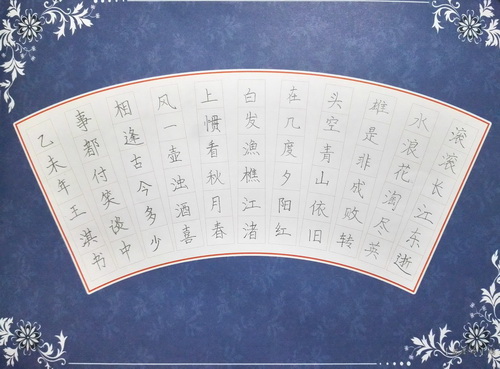 滚滚长江东逝
水浪花淘尽英
雄是非成败转
头空青山依旧
在几度夕阳红
白发漁樵江渚
上惯看秋月春
风一壶浊酒喜
相逢古今多少
事都付笑谈中
乙未年王淇书